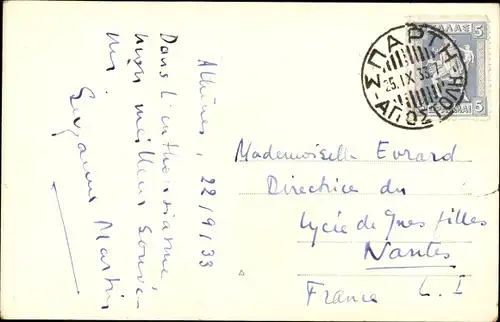 Athènes, 22/9/33
Dans l'enthousiasme,
mon meilleur souve-
nir.
Suzanne Martin
ΕΛΛΑΣ
5
5
ΣΠΑΡΤΗ
25.IX.33.7
ΑΠΟΣΤΟΛΗ
Mademoiselle Evrard
Directrice du
Lycée de Jnes filles
Nantes
France L. I.